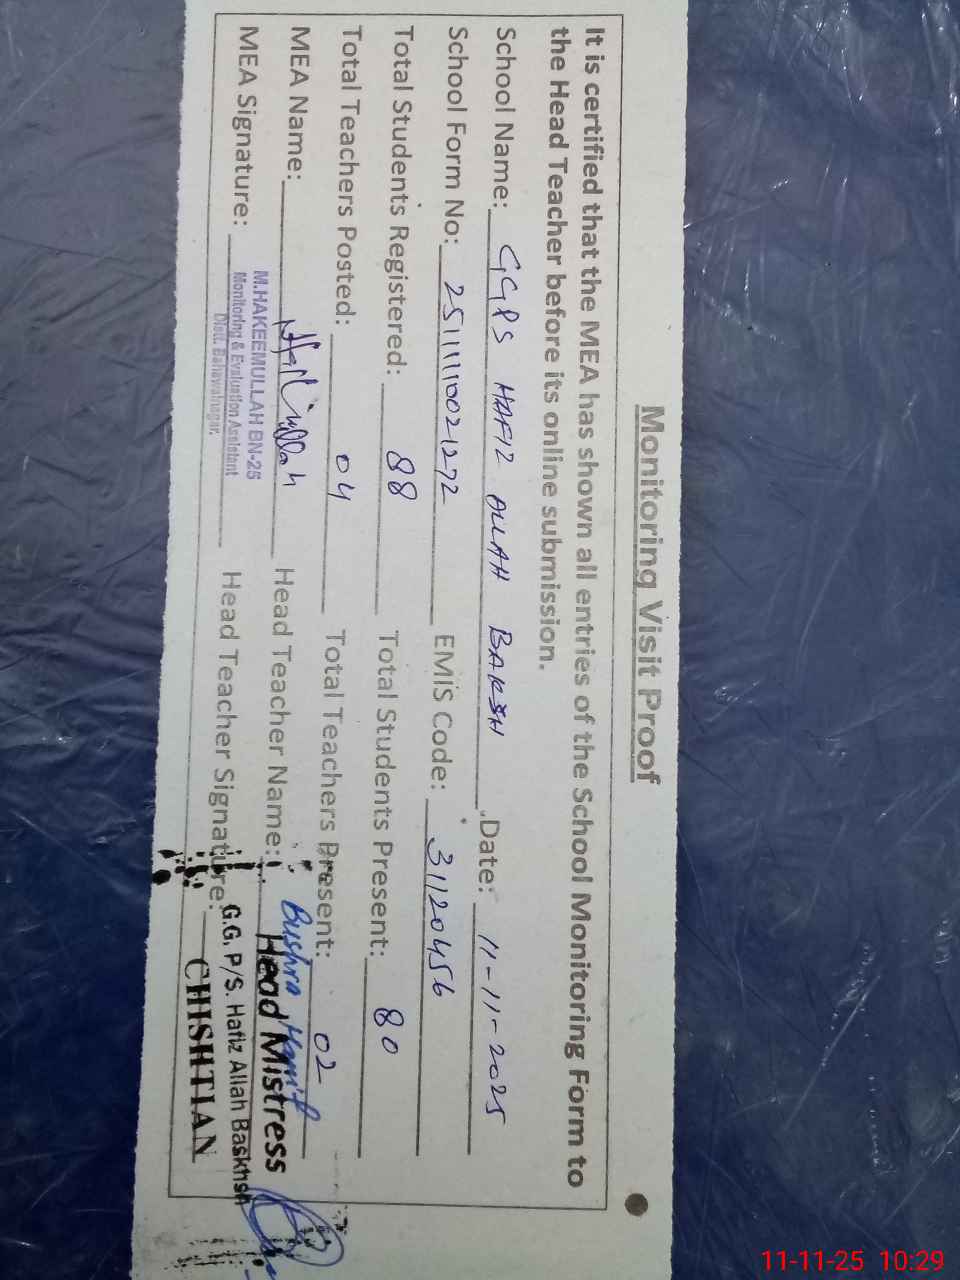 Monitoring Visit Proof
It is certified that the MEA has shown all entries of the School Monitoring Form to
the Head Teacher before its online submission.
School Name: GGPS HAFIZ ALLAH BAKSH Date: 11-11-2025
School Form No: 25111110021272 EMIS Code: 31120456
Total Students Registered: 88 Total Students Present: 80
Total Teachers Posted: 04 Total Teachers Present: 02
MEA Name: Head Teacher Name: Bushra
M.HAKEEMULLAH BN-25 Head Mistress
MEA Signature: Monitoring & Evaluation Assistant Head Teacher Signature: G.G. P/S. Hafiz Allah Baskhsh
Distt. Bahawalnagar. CHISHTIAN
11-11-25 10:29